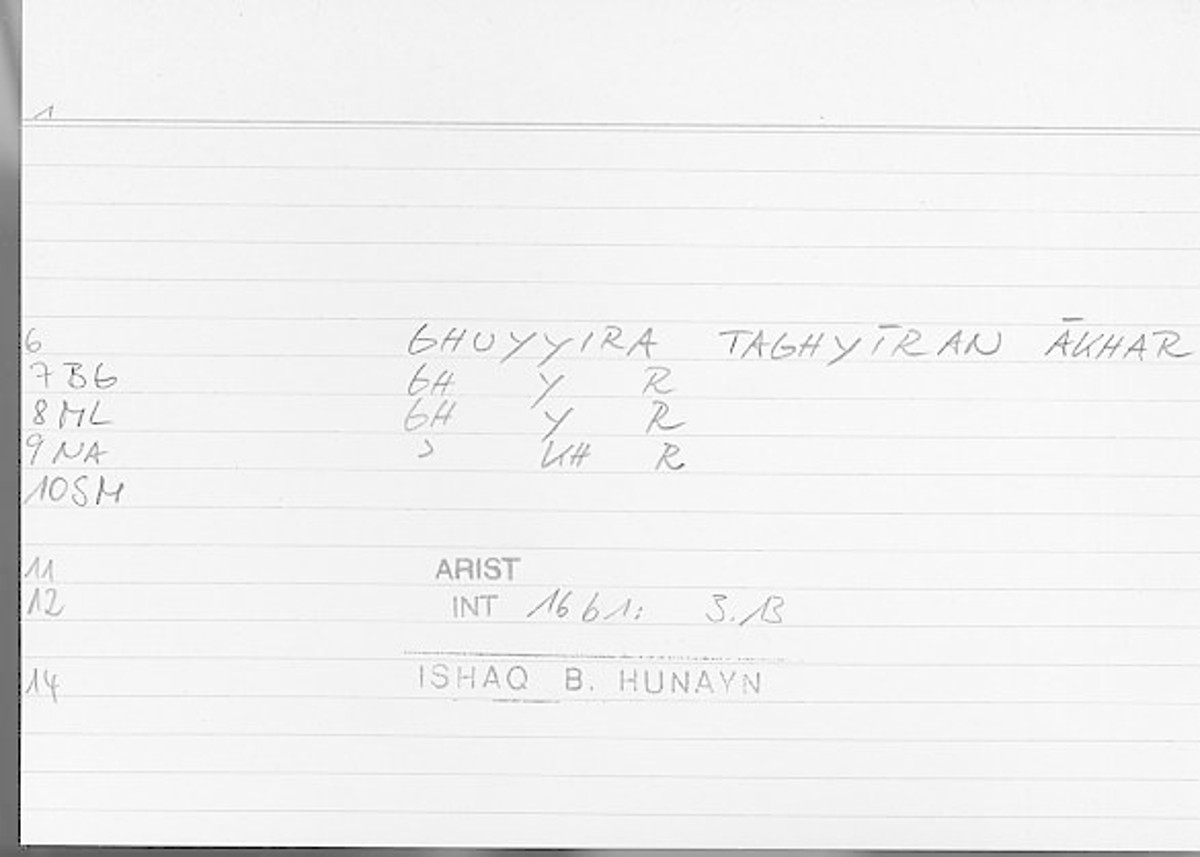 1
6 GHUYYIRA TAGHYĪRAN ĀKHAR
7 BG GH Y R
8 ML GH Y R
9 NA ʾ KH R
10 SM
11 ARIST
12 INT 16 b 1: 3.13
14 ISHAQ B. HUNAYN